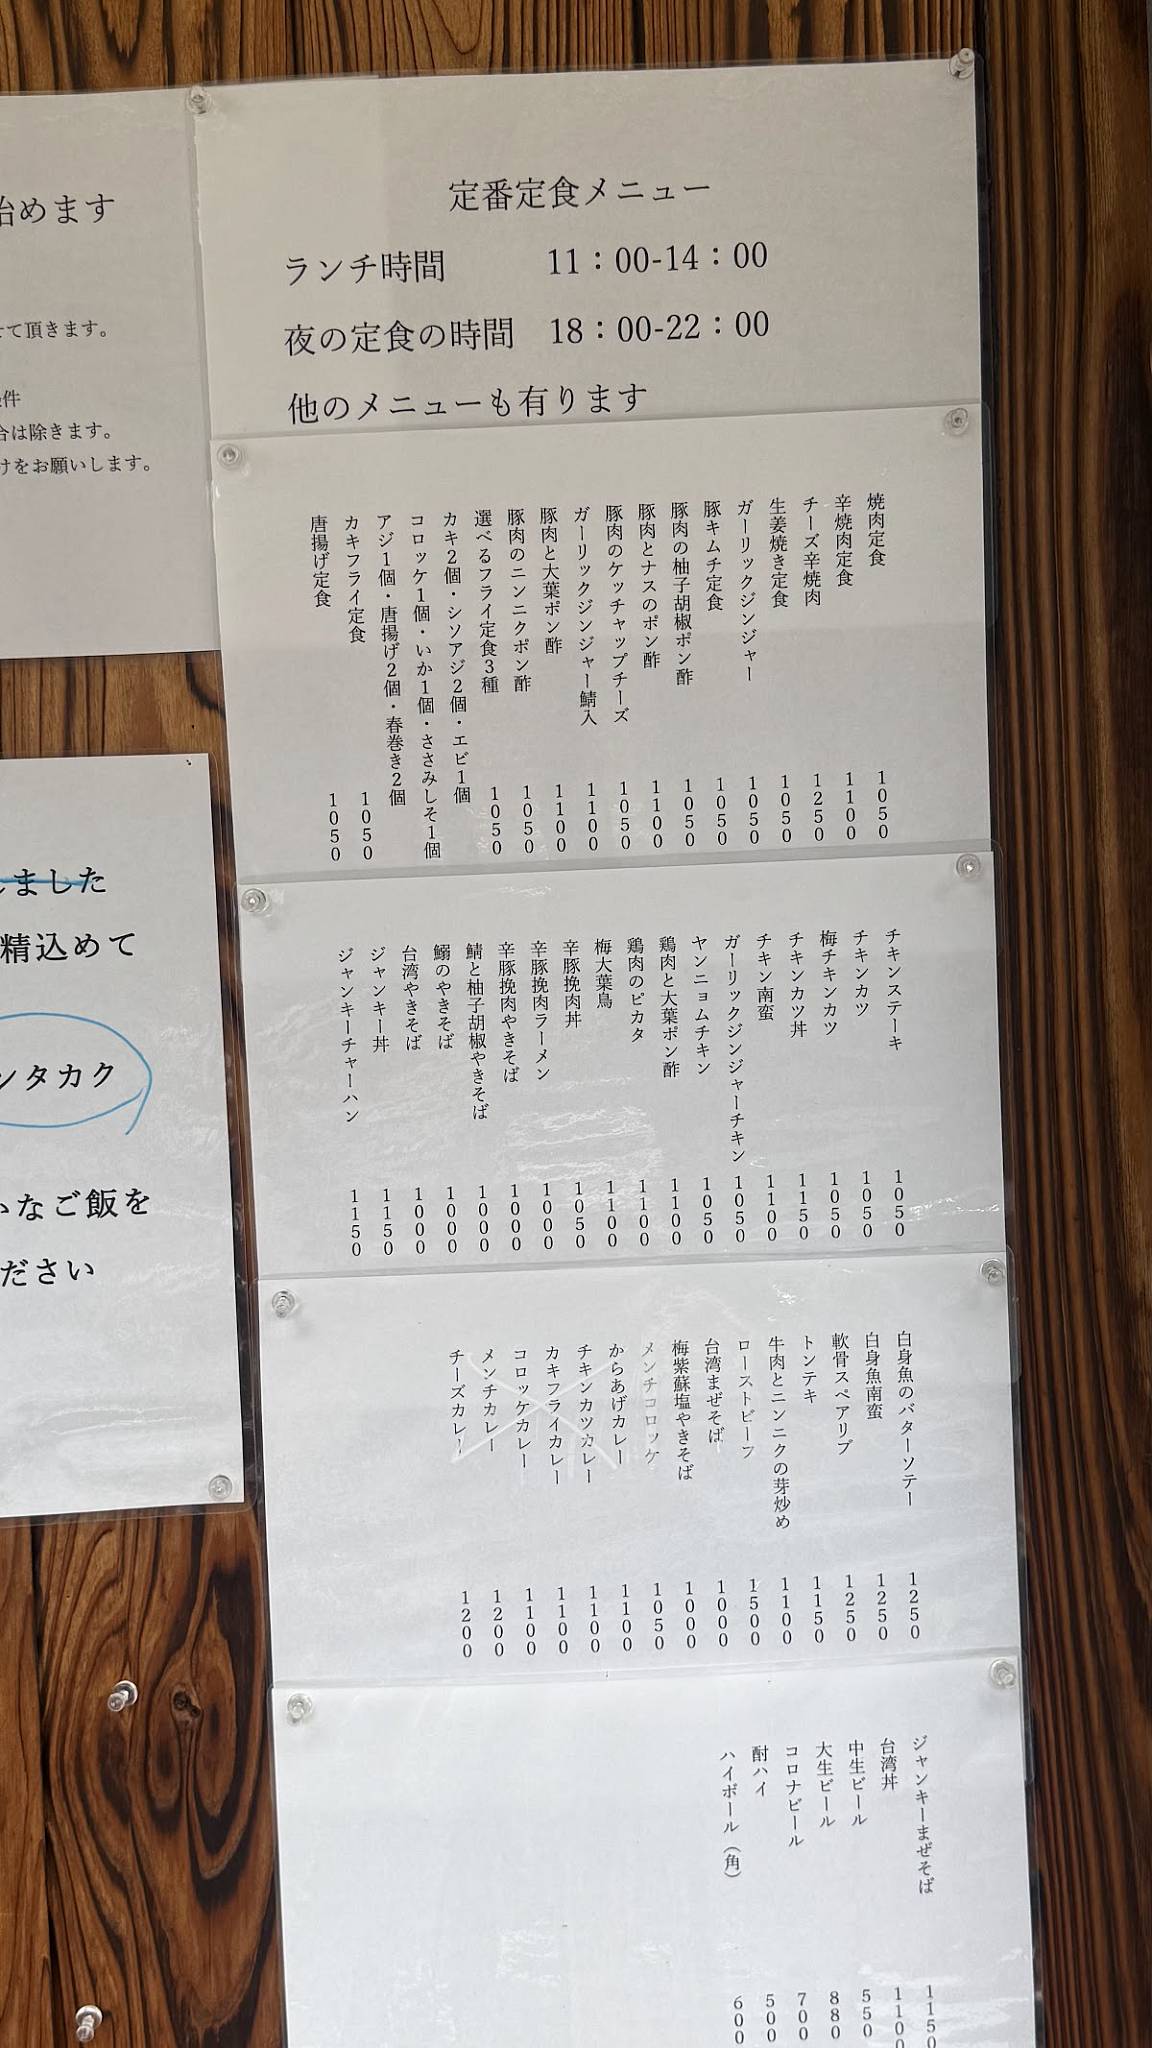 定番定食メニュー
ランチ時間 11：00-14：00
夜の定食の時間 18：00-22：00
他のメニューも有ります
焼肉定食 1050
辛焼肉定食 1100
チーズ辛焼肉 1250
生姜焼き定食 1050
ガーリックジンジャー 1050
豚キムチ定食 1050
豚肉の柚子胡椒ポン酢 1050
豚肉とナスのポン酢 1100
豚肉のケッチャップチーズ 1050
ガーリックジンジャー鯖入 1100
豚肉と大葉ポン酢 1100
豚肉のニンニクポン酢 1050
選べるフライ定食3種 1050
カキ2個・シソアジ2個・エビ1個
コロッケ1個・いか1個・ささみしそ1個
アジ1個・唐揚げ2個・春巻き2個
カキフライ定食 1050
唐揚げ定食 1050
チキンステーキ 1050
チキンカツ 1050
梅チキンカツ 1050
チキンカツ丼 1150
チキン南蛮 1100
ガーリックジンジャーチキン 1050
ヤンニョムチキン 1050
鶏肉と大葉ポン酢 1100
鶏肉のピカタ 1100
梅大葉鳥 1100
辛豚挽肉丼 1050
辛豚挽肉ラーメン 1000
辛豚挽肉やきそば 1000
鯖と柚子胡椒やきそば 1000
鰯のやきそば 1000
台湾やきそば 1000
ジャンキー丼 1150
ジャンキーチャーハン 1150
白身魚のバターソテー 1250
白身魚南蛮 1250
軟骨スペアリブ 1250
トンテキ 1150
牛肉とニンニクの芽炒め 1100
ローストビーフ 1500
台湾まぜそば 1000
梅紫蘇塩やきそば 1000
メンチコロッケ 1050
からあげカレー 1100
チキンカツカレー 1100
カキフライカレー 1100
コロッケカレー 1100
メンチカレー 1200
チーズカレー 1200
ジャンキーまぜそば 1150
台湾丼 1100
中生ビール 550
大生ビール 880
コロナビール 700
酎ハイ 500
ハイボール（角） 600
始めます
て頂きます。
件
合は除きます。
けをお願いします。
しました
精込めて
ンタカク
いなご飯を
ださい